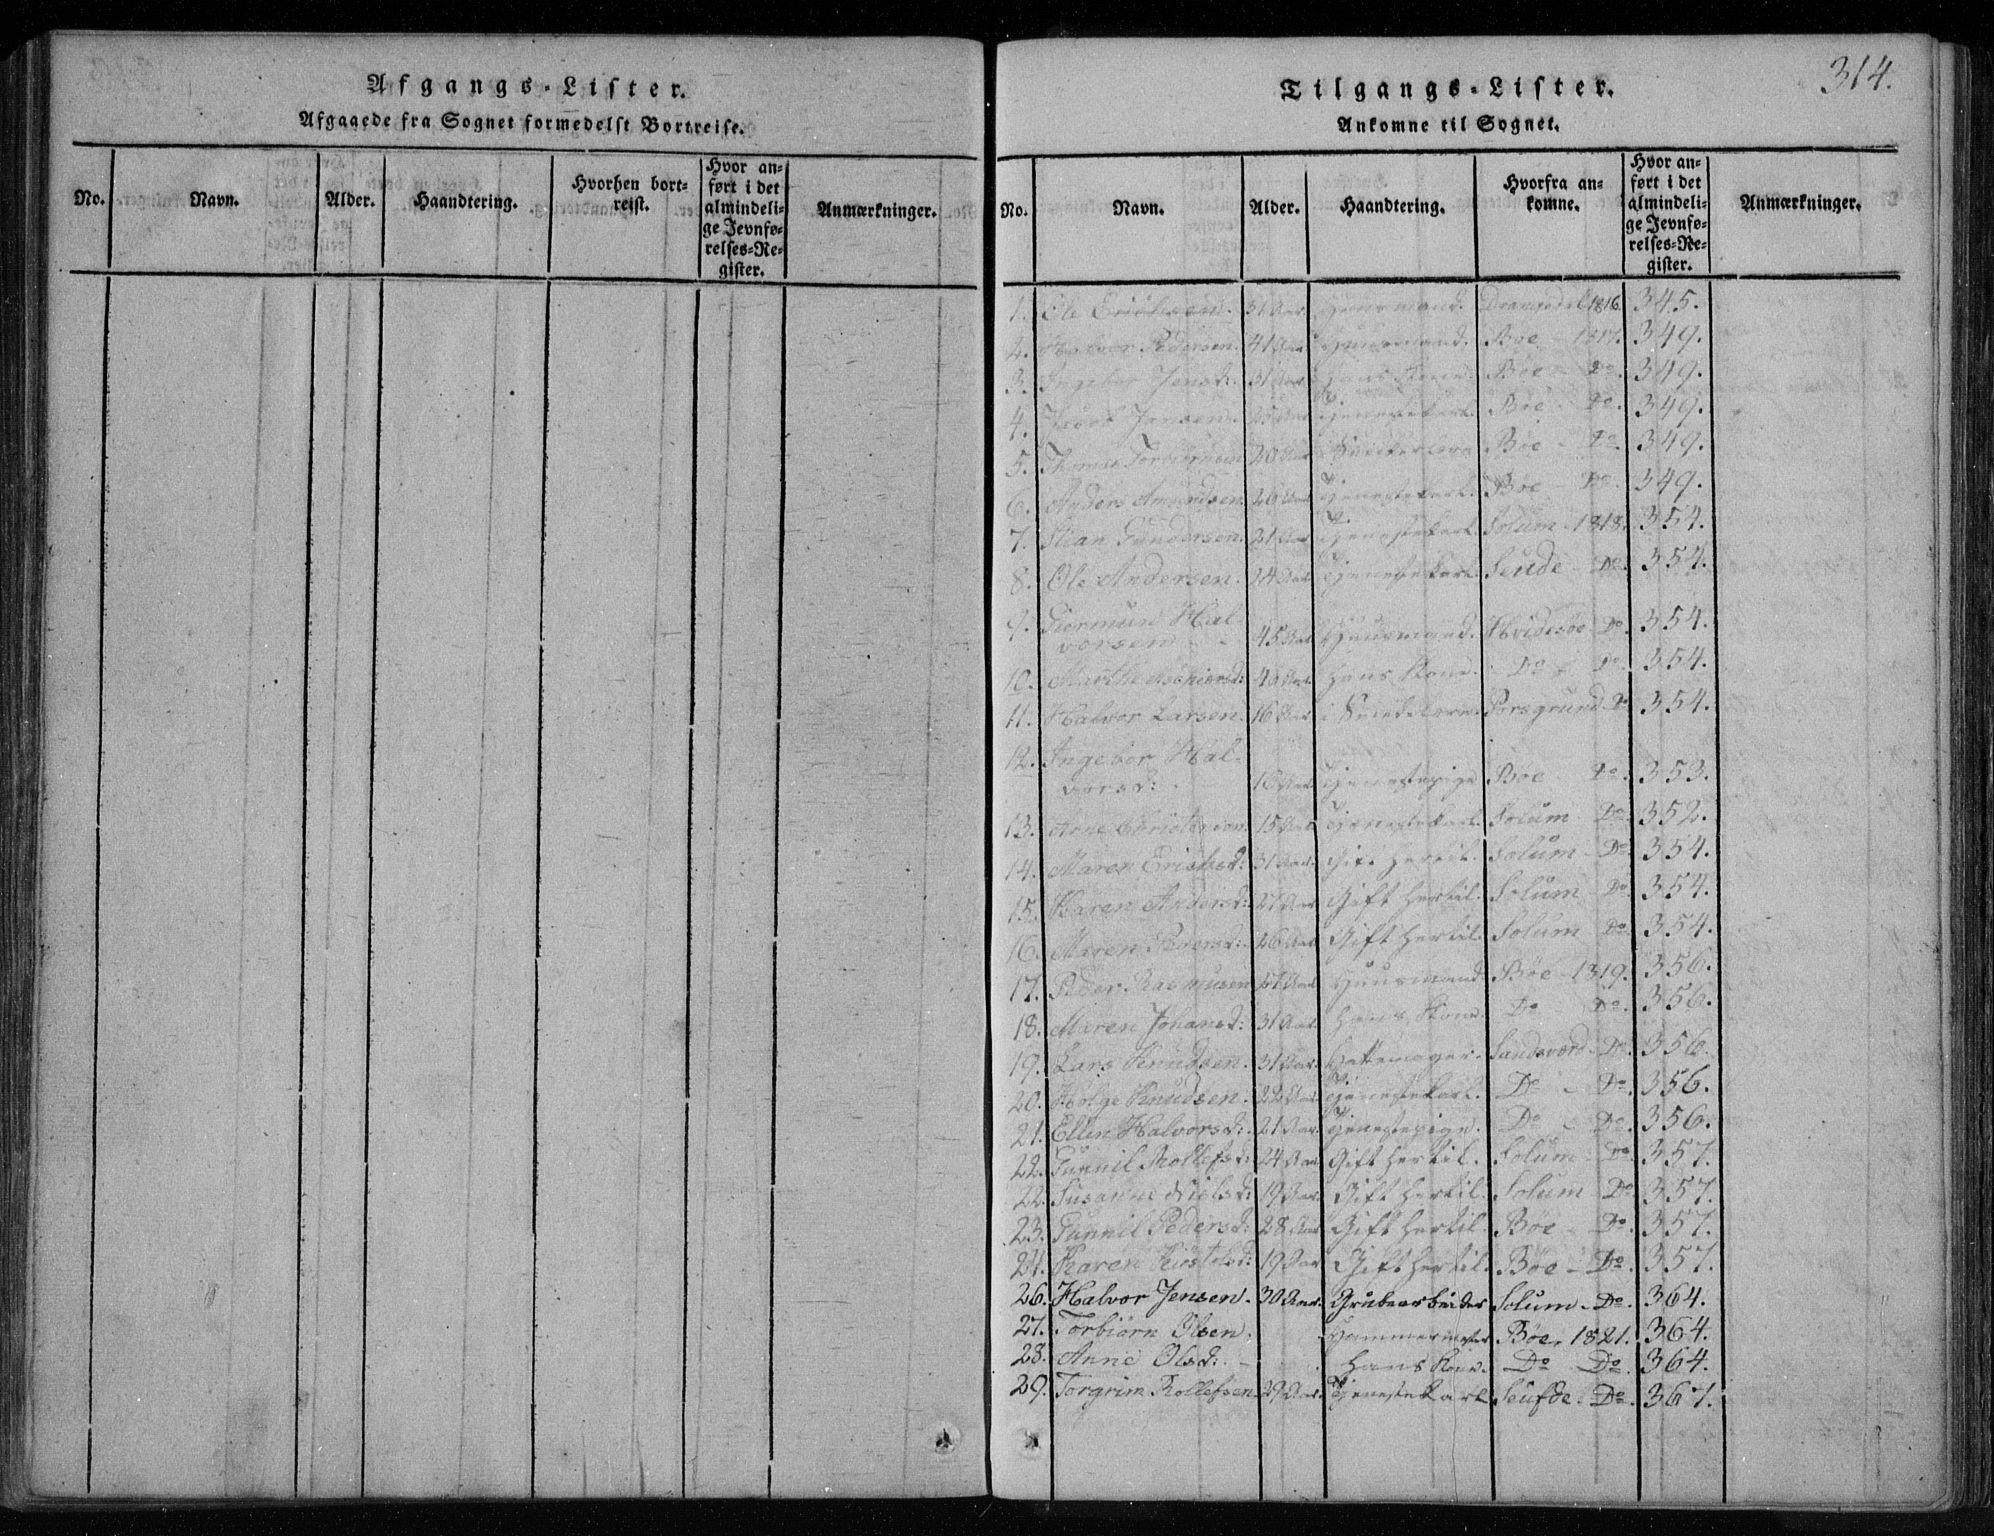 Afgangs-Lister.
Afgaaede fra Sognet formedelst Bortreise.
No. Navn. Alder. Haandtering. Hvorhen bortreist. Hvor anført i det almindelige Jevnførelses-Register. Anmærkninger.
314.
Tilgangs-Lister.
Ankomne til Sognet.
No. Navn. Alder. Haandtering. Hvorfra ankomne. Hvor anført i det almindelige Jevnførelses-Register. Anmærkninger.
1. Ole 31 Aar Huusmand. 1816 345.
2. Halvor Pedersen. 41 Aar Huusmand. Bøe - 1817. 349.
3. Ingebor Jensd: 31 Aar hans Kone. Bøe - Do. 349.
4. Jensen. Tjenestekarl. Bøe - Do. 349.
5. 20 Aar Bøe - Do 349.
6. Anders Amundsen 26 Aar Tjenestekarl. Bøe - Do. 349.
7. Stian Gundersen. 21 Aar Tjenestekarl. Solum - 1818. 354.
8. Ole Andersen. 34 Aar Tjenestekarl. Seude - Do. 354.
9. Giermun Hal-
vorsen 45 Aar Huusmand. Hvidesøe Do. 354.
10. Marthe hans Kone. Do - Do. 354.
11. Halvor Larsen. 16 Aar i Porsgrund. Do 354.
12. Ingebor Hal-
vorsd: 16 Aar Tjenestepige Bøe - Do. 353.
13. Arne 15 Aar Tjenestekarl. Solum - Do. 352.
14. Maren Ericksd: 31 Aar. Gift hertil. Solum - Do. 354.
15. Karen Andersd: 27 Aar Gift hertil. Solum Do 354.
16. Maren Pedersd: 26 Aar Gift hertil. Solum Do. 354.
17. Peder Rasmusen 27 Aar Huusmand. Bøe - 1819. 356.
18. Maren Johansd: 31 Aar. hans Kone. Do - Do. 356.
19. Lars Knudsen. 31 Aar. Hattemager. Sandsværd - Do. 356.
20. Holge Knudsen. 22 Aar Tjenestekarl. Do - Do. 356.
21. Ellen Halvorsd: 21 Aar. Tjenestepige. Do - Do. 356.
22. Gunnil Rollefsd: 24 Aar Gift hertil. Solum - Do 357.
22. Susanne Nielsd: 19 Aar. Gift hertil. Solum - Do. 357.
23. Gunnil Pedersd: 28 Aar Gift hertil. Bøe - Do. 357.
24. Karen 19 Aar Gift hertil. Bøe - Do. 357.
26. Halvor Jensen. 30 Aar. Grubearbeider Solum - Do. 364.
27. Torbiørn Olsen. Hammermester Bøe. 1821. 364.
28. Anne Olsd: - hans Kone. Do - Do 364.
29. Torgrim Rollefsen 29 Aar. Tjenestekarl Seufde. Do. 367.